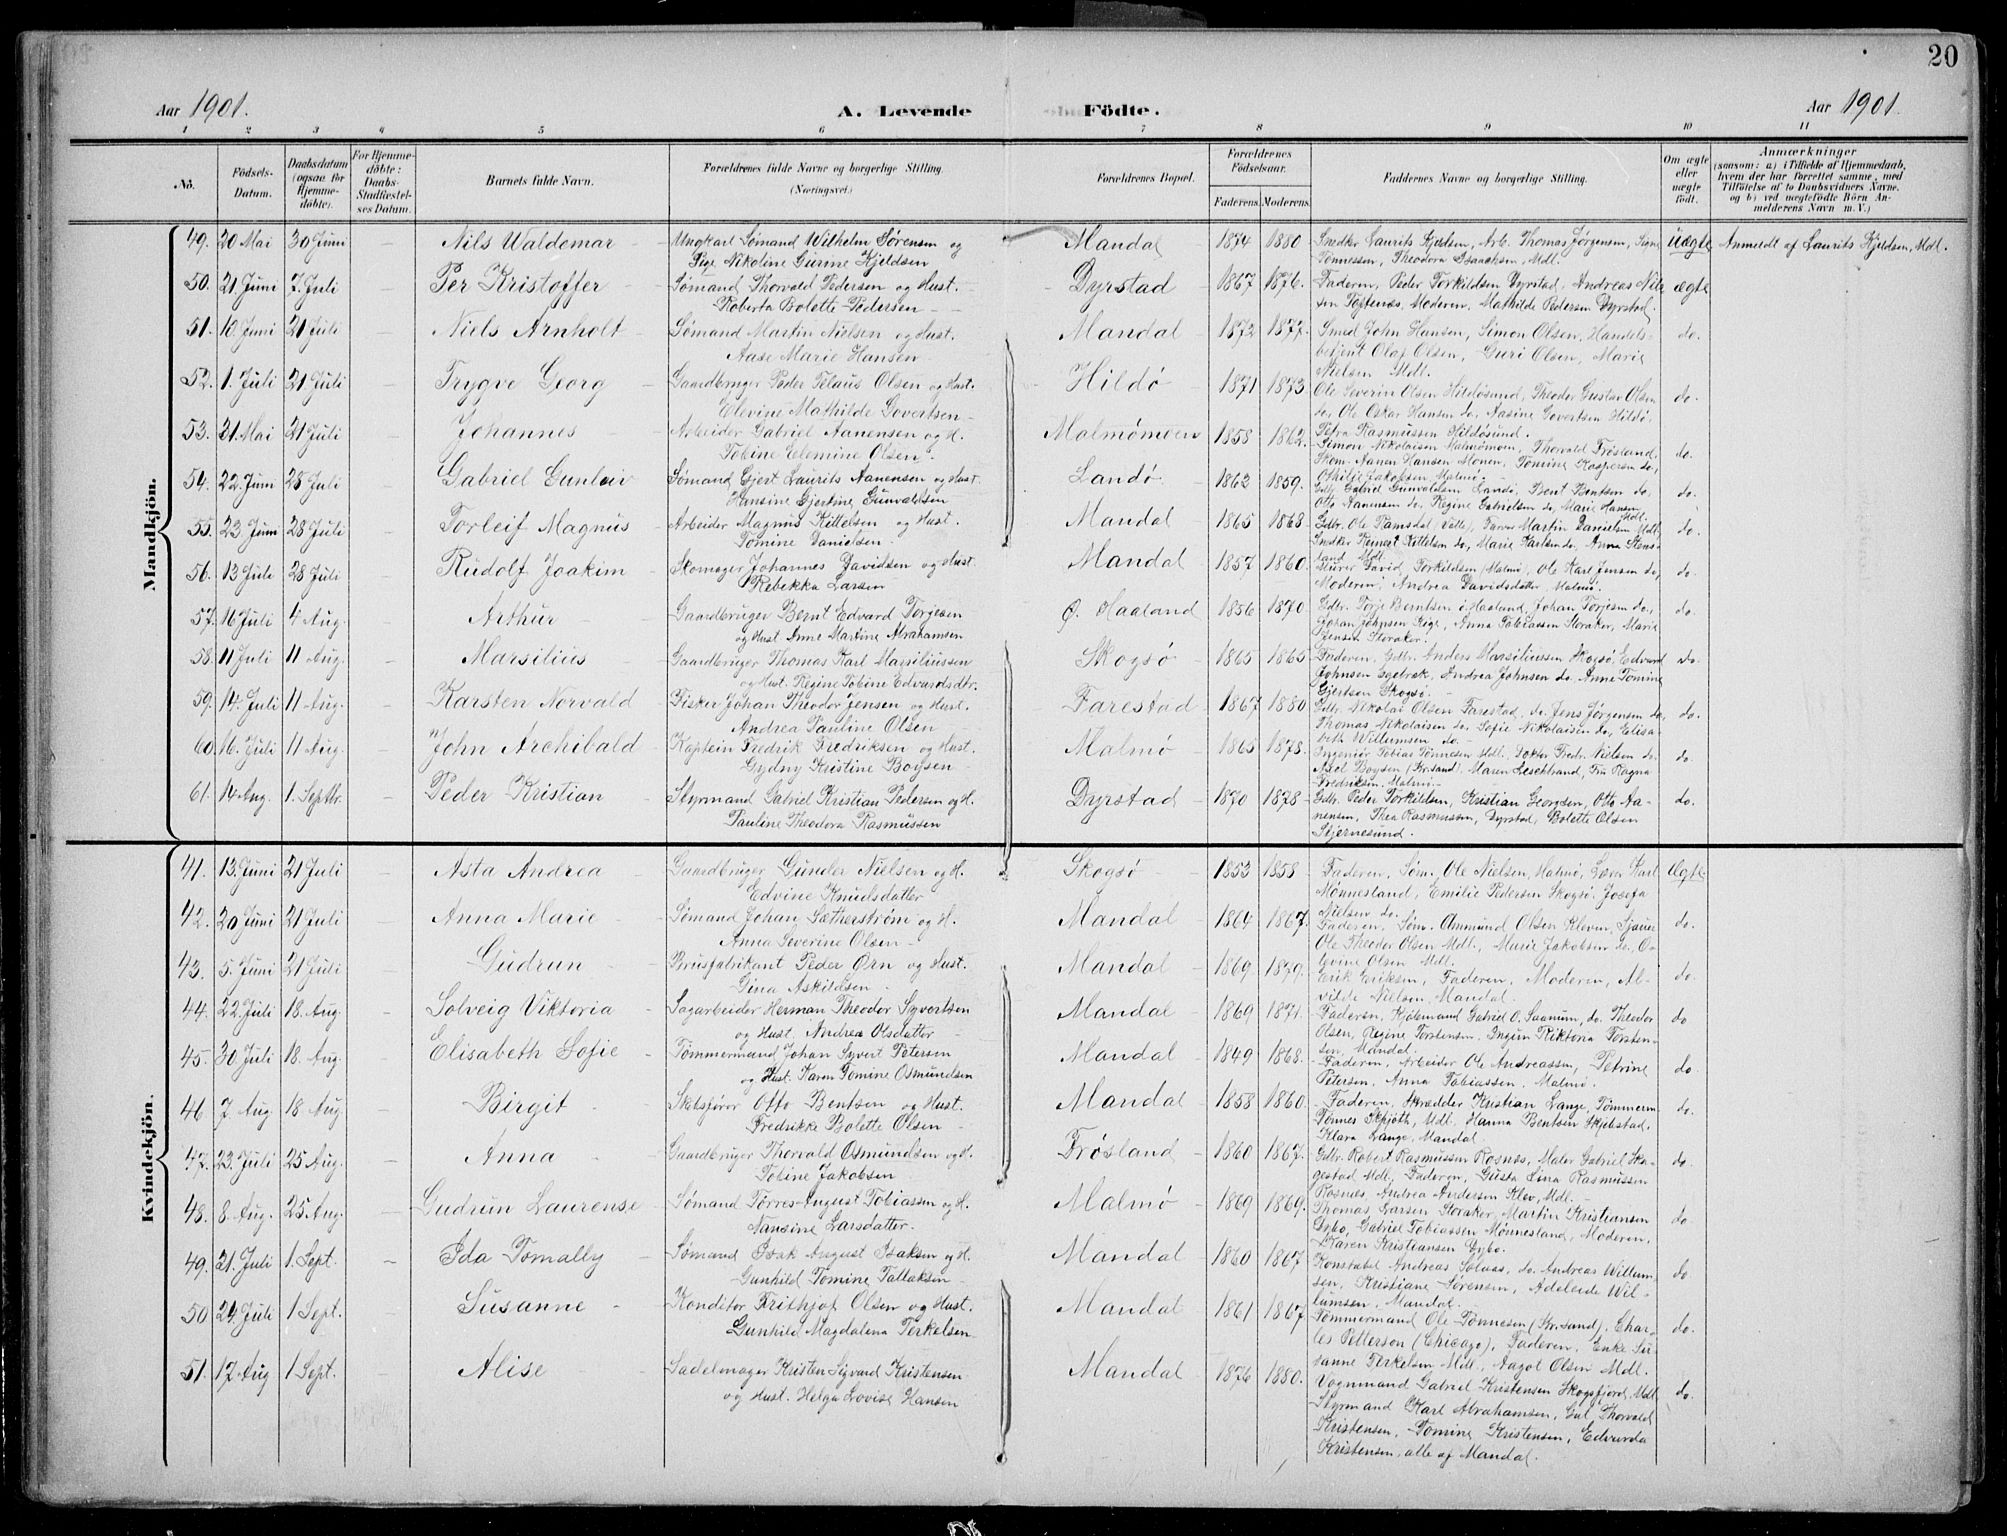 20
Aar 1901.
A. Levende Födte.
Aar 1901.
1 2 3 4 5 6 7 8 9 10 11
No.
Födsels-Datum.
Daabsdatum (ogsaa for Hjemme-döbte).
For Hjemme-döbte: Daabs-Stadfæstelses Datum.
Barnets fulde Navn.
Forældrenes fulde Navne og borgerlige Stilling. (Næringsvei.)
Forældrenes Bopæl.
Forældrenes Födselsaar.
Faderens. Moderens.
Faddernes Navne og borgerlige Stilling.
Om ægte eller uægte födt.
Anmærkninger
(saasom: a) i Tilfælde af Hjemmedaab, hvem der har forrettet samme, med Tilföielse af to Daabsvidners Navne, og b) ved uægtefödte Börn Anmelderens Navn m. V.)
Mandkjön.
49. 20 Mai 30 Juni — Nils Waldemar Ungkarl Sømand Wilhelm Sørensen og Pige Nikoline Gurine Kjeldsen Mandal 1874 1880 Snedker Laurits Kjeldsen, Arb. Thomas Jørgensen, Signe Tønnessen, Theodora Isaachsen, Mdl. uægte Anmeldt af Laurits Kjeldsen, Mdl.
50. 21 Juni 7. Juli — Per Kristoffer Sømand Thorvald Pedersen og Hust. Roberta Bolette Pedersen Dyrstad 1867 1876. Faderen, Peder Torkildsen Dyrstad, Andreas Nilsen Toftenæs, Moderen, Mathilde Pedersen Dyrstad. ægte
51. 10 Juni 21 Juli — Niels Arnholt Sømand Martin Nielsen og Hust. Aase Marie Hansen Mandal 1872 1877. Smed John Hansen, Simon Olsen, Handelsbetjent Olaf Olsen, Guri Olsen, Marie Nielsen Mdl. do.
52. 1. Juli 21 Juli — Trygve Georg Gaardbruger Peder Telaus Olsen og Hust. Elevine Mathilde Govertsen Hildø 1871 1873 Ole Severin Olsen Hildøsund, Theodor Gustav Olsen do, Ole Oskar Hansen do, Aasine Govertsen Hildø, Petra Rasmussen Hildøsund. do.
53. 31. Mai 21 Juli — Johannes Arbeider Gabriel Aanensen og H. Tobine Elemine Olsen Malmømoen 1858 1862. Simon Nikolaisen Malmømoen, Thorvald Frøsland, Skom. Aanen Hansen Monen, Tomine Kaspersen do, Othilie Jakobsen, Malmø. do.
54. 22. Juni 28 Juli — Gabriel Gunleiv Sømand Gjert Laurits Aanensen og Hust. Hansine Gjertine Gunvaldsen Landø 1863 1859. Gdbr. Gabriel Gunvaldsen Landø, Bent Bentsen do, Otto Aanensen do, Regine Gabrielsen do, Marie Hansen Mdl. do.
55. 23. Juni 28 Juli — Torleif Magnus Arbeider Magnus Kittelsen og Hust. Tomine Danielsen Mandal 1865 1868 Gdbr. Ole Ramsdal, Martin Danielsen Mdl, Snedker Reinert Kittelsen do, Marie Karlsen do, Anna Stensland Mdl. do.
56. 13 Juli 28 Juli — Rudolf Joakim Skomager Johannes Davidsen og Hust. Rebekka Larsen Mandal 1857 1860. David Torkildsen (Malmø), Ole Karl Jensen do, Moderen, Andrea Davidsdatter, Malmø. do.
57. 16 Juli 4 Aug. — Arthur Gaardbruger Bernt Edvard Torjesen og Hust. Anne Martine Abrahamsen Ø. Haaland 1856 1870. Gdbr. Torje Berntsen i Haaland, Johan Torjesen do, Johan Johnsen Rige, Anna Tobiassen Storaker, Marie Jensen Storaker. do.
58. 11 Juli 11 Aug. — Marsilius Gaardbruger Thomas Karl Marsiliussen og Hust. Regine Tobine Edvardsdtr. Skogsø 1865 1865 Faderen, Gdbr. Anders Marsiliussen Skogsø, Edvard Johnsen Egebræk, Andrea Johnsen do. Anne Tomine Gjertsen Skogsø. do.
59. 14. Juli 11 Aug. — Karsten Norvald Fisker Johan Theodor Jensen og Hust. Andrea Pauline Olsen Farestad 1867 1880 Gdbr. Nikolai Olsen Farestad, do. Jens Jørgensen do, Thomas Nikolaisen do, Sofie Nikolaisen do, Elisabeth Willumsen do. do.
60. 16. Juli 11 Aug. — John Archibald Kaptein Fredrik Fredriksen og Hust. Gydny Kristine Boysen Malmø 1865 1878. Ingeniør Tobias Tønnesen Mdl. Doktor Fredr. Nielsen do. Axel Boysen (Kr.sand), Maren Leschbrand, Fru Ragna Fredriksen, Malmø. do.
61. 14 Aug. 1. Septbr. — Peder Kristian Styrmand Gabriel Kristian Pedersen og H. Pauline Theodora Rasmussen Dyrstad 1870 1878 Gdbr. Peder Torkildsen, Kristian Georgsen, Otto Aanensen, Thea Rasmussen, Dyrstad, Bolette Olsen Skjernesund. do.
Kvindekjön.
41. 13. Juni 21 Juli — Asta Andrea Gaardbruger Gunder Nielsen og H. Edvine Knudsdatter Skogsø 1853 1858 Faderen, Søm. Ole Nielsen, Malmø, Lærer Karl Mønnesland, Emilie Pedersen Skogsø. Josefa Nielsen do. Ægte
42. 20 Juni 21 Juli — Anna Marie Sømand Johan Sætherstrøm og H. Anna Severine Olsen Mandal 1864 1867. Faderen, Søm. Osmund Olsen Kleven, Sjauer Ole Theodor Olsen Mdl., Marie Jakobsen do, Olevine Olsen Mdl. do.
43. 5. Juni 21 Juli — Gudrun Brusfabrikant Peder Ørn og Hust. Gina Askildsen Mandal 1869. 1879. Erik Eriksen, Faderen, Moderen, Alvilde Nielsen, Mandal. do.
44. 22 Juli 18. Aug. — Solveig Viktoria Sagarbeider Herman Theodor Syvertsen og Hust. Andrea Olsdatter Mandal 1869 1871. Faderen, Kjøbmand Gabriel O. Saanum, do. Theodor Olsen, Regine Torstensen, Ingun Viktoria Torstensen, Mandal. do
45. 30 Juli 18. Aug. — Elisabeth Sofie Tømmermand Johan Syvert Petersen og Hust. Karen Tomine Osmundsen Mandal 1849 1868. Faderen, Arbeider Ole Andreassen, Petrine Petersen, Anna Tobiassen, Malmø. do.
46 7 Aug. 18 Aug. — Birgit Skibsfører Otto Bentsen og Hust. Fredrikke Bolette Olsen Mandal 1858 1860. Faderen, Skrædder Kristian Lange, Tømmerm Tønnes Skjøth, Mdl. Hanna Bentsen Skjebstad, Klara Lange, Mandal. do.
47. 23. Juli 25 Aug. — Anna Gaardbruger Thorvald Osmundsen og H. Tobine Jakobsen Frøsland 1860 1867. Gdbr. Robert Rasmussen Rosnæs, Maler Gabriel Skagestad Mdl, Faderen, Gusta Lina Rasmussen Rosnæs, Andrea Andersen Klev, Mdl. do.
48. 8. Aug. 25 Aug. — Gudrun Laurense Sømand Torres August Tobiassen og H. Nansine Larsdatter. Malmø 1869 1869. Thomas Larsen Storaker, Martin Kristiansen Gybo, Gabriel Tobiassen Mønnesland, Moderen, Karen Kristiansen Gybo. do
49. 21. Juli 1. Sept. — Ida Tomally Sømand Isak August Isaksen og H. Gunhild Tomine Tallaksen Mandal 1860 1867 Konstabel Andreas Solaas, do. Andreas Willumsen, Kristiane Sørensen, Adeleide Willumsen, Mandal. do
50 24. Juli 1 Sept. — Susanne Konditor Frithjof Olsen og Hust. Gunhild Magdalena Terkelsen Mandal 1861 1867 Tømmermand Ole Tønnesen (Kr.sand). Charles Petterson (Chicago), Faderen, Enke Susanne Terkelsen Mdl, Aagot Olsen Mdl. do.
51. 17 Aug 1 Sept. — Alise Sadelmager Kristen Sigvard Kristensen og Hust. Helga Lovise Hansen Mandal 1876 1880. Vognmand Gabriel Kristensen Skogsfjord, Mdl, Styrmand Karl Abrahamsen, Gul. Thorvald Kristensen, Tomine Kristensen, Edvarda Kristensen, alle af Mandal. do.